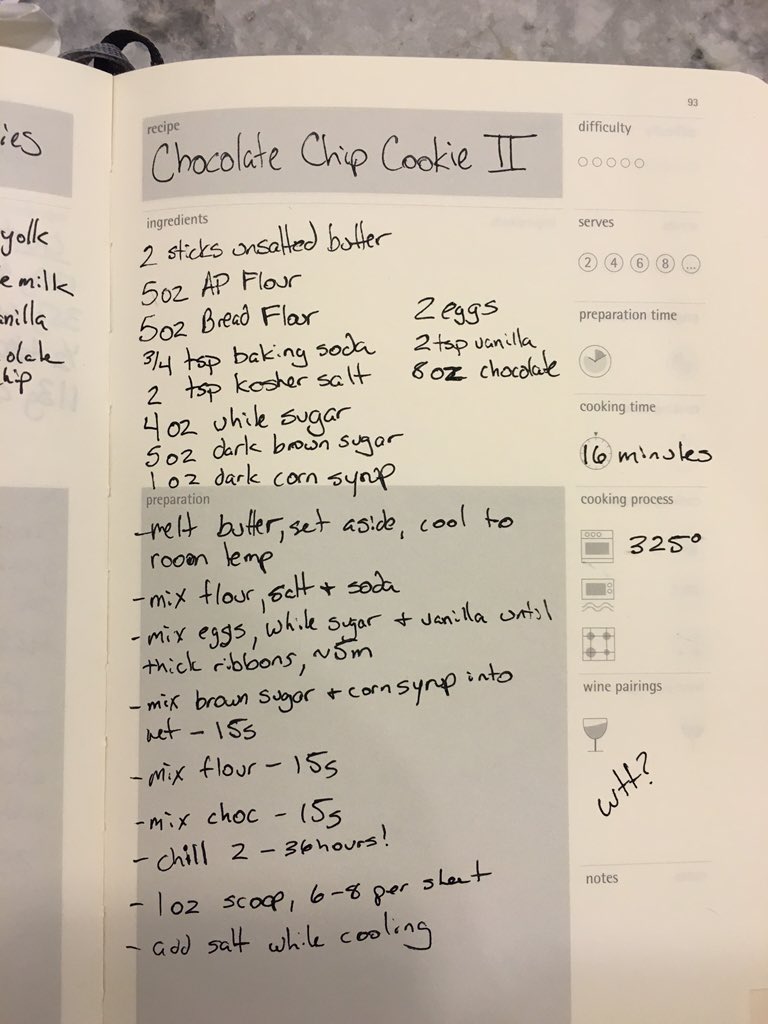 93
ies
yolk
e milk
anilla
olate
hip
recipe
Chocolate Chip Cookie II
ingredients
2 sticks unsalted butter
5oz AP Flour
5oz Bread Flour
3/4 tsp baking soda
2 tsp kosher salt
4oz white sugar
5oz dark brown sugar
1 oz dark corn syrup
2 eggs
2 tsp vanilla
8oz chocolate
preparation
-melt butter, set aside, cool to
room temp
-mix flour, salt + soda
-mix eggs, white sugar + vanilla until
thick ribbons, ~5m
-mix brown sugar + corn syrup into
wet - 15s
-mix flour - 15s
-mix choc - 15s
-chill 2 - 36 hours!
-1oz scoop, 6-8 per sheet
-add salt while cooling
difficulty
serves
2 4 6 8 ...
preparation time
cooking time
16 minutes
cooking process
325°
wine pairings
wtf?
notes